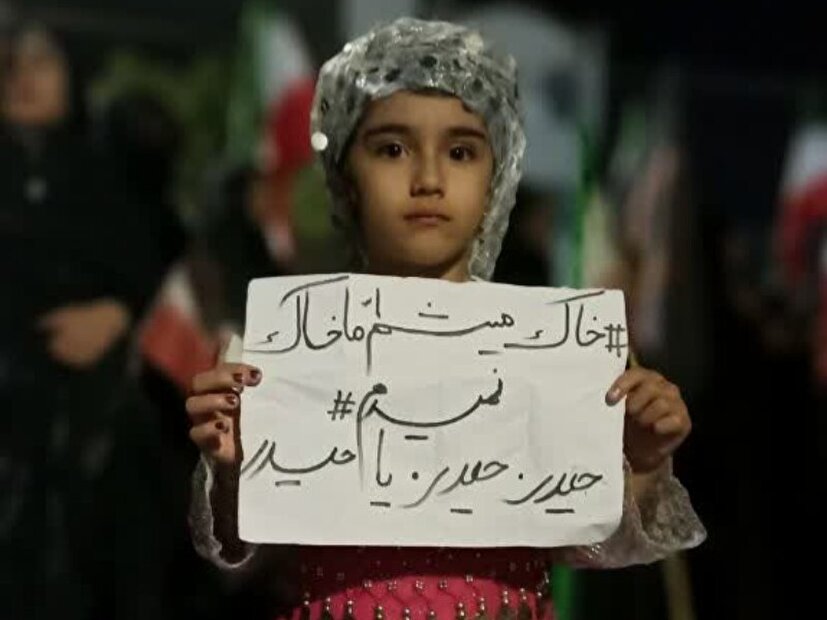 #خاک میشم اما خاک
نمیدم#
حیدر حیدر یا حیدر